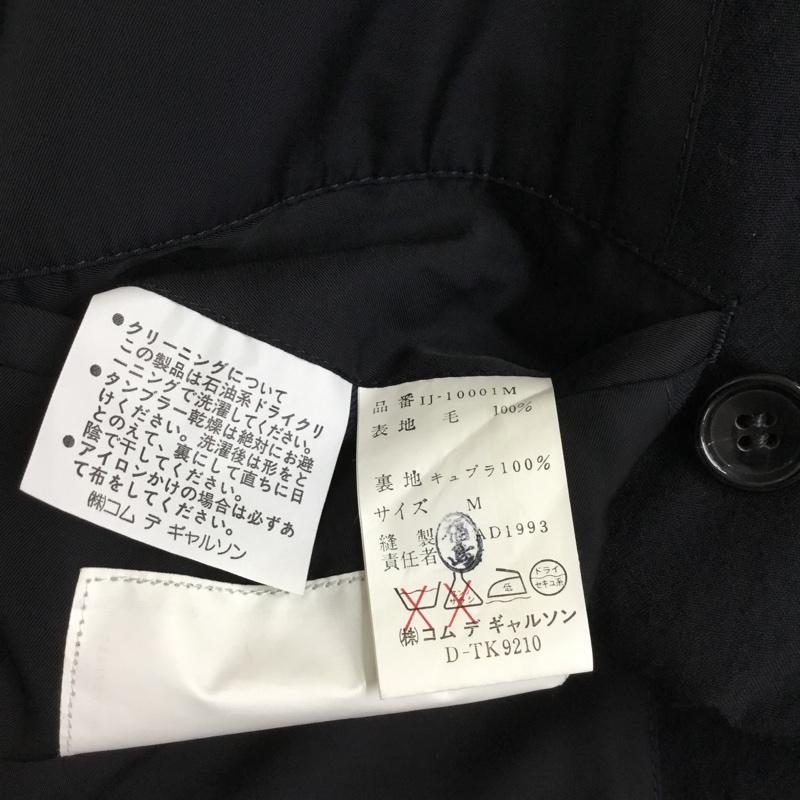 ●クリーニングについて
この製品は石油系ドライクリ
ーニングで洗濯してください。
タンブラー乾燥は絶対にお避
けください。洗濯後は形をと
とのえて、裏にして直ちに日
陰で干してください。
●アイロンかけの場合は必ずあ
て布をしてください。
㈱コム デ ギャルソン
品番 IJ-10001M
表地 毛 100%
裏地 キュプラ100%
サイズ M
縫製
責任者
AD1993
低
ドライ
セキユ系
㈱コム デ ギャルソン
D-TK9210